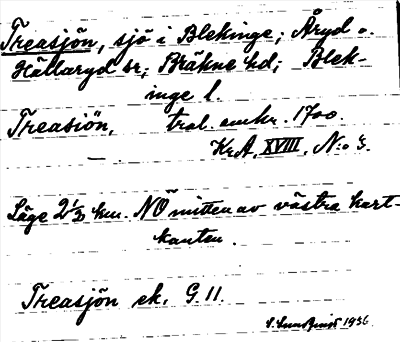 Treasjön, sjö i Blekinge; Åryd o.
Hällaryd sr; Bräkne hd; Blek-
inge l.
Treasiön, trol. omkr. 1700.
KrA, XVIII, N:o 3.
Läge 2 1/3 km. NÖ mitten av västra kart-
kanten.
Treasjön ek. G. 11.
S. Lundqvist 1936